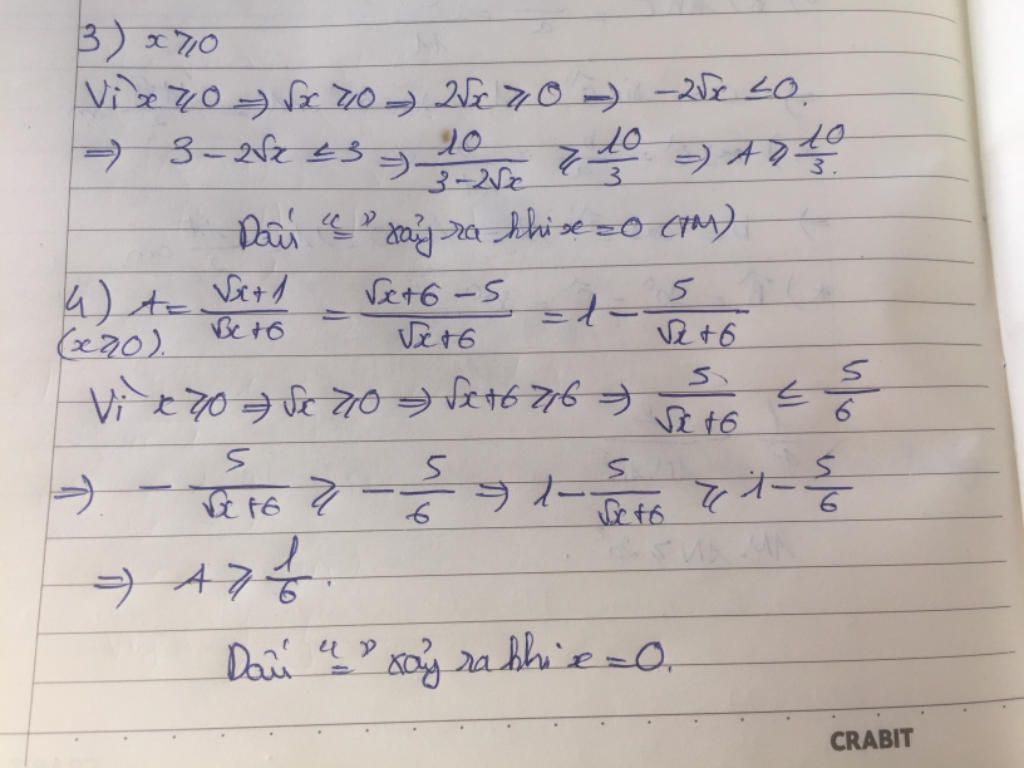 3) x ⩾ 0
Vì x ⩾ 0 ⇒ √x ⩾ 0 ⇒ 2√x ⩾ 0 ⇒ -2√x ≤ 0.
⇒ 3 - 2√x ≤ 3 ⇒ 10/(3-2√x) ⩾ 10/3 ⇒ A ⩾ 10/3.
Dấu "=" xảy ra khi x = 0 (TM)
4) A = (√x+1)/(√x+6) = (√x+6-5)/(√x+6) = 1 - 5/(√x+6)
(x ⩾ 0).
Vì x ⩾ 0 ⇒ √x ⩾ 0 ⇒ √x+6 ⩾ 6 ⇒ 5/(√x+6) ≤ 5/6
⇒ - 5/(√x+6) ⩾ - 5/6 ⇒ 1 - 5/(√x+6) ⩾ 1 - 5/6
⇒ A ⩾ 1/6.
Dấu "=" xảy ra khi x = 0.
CRABIT